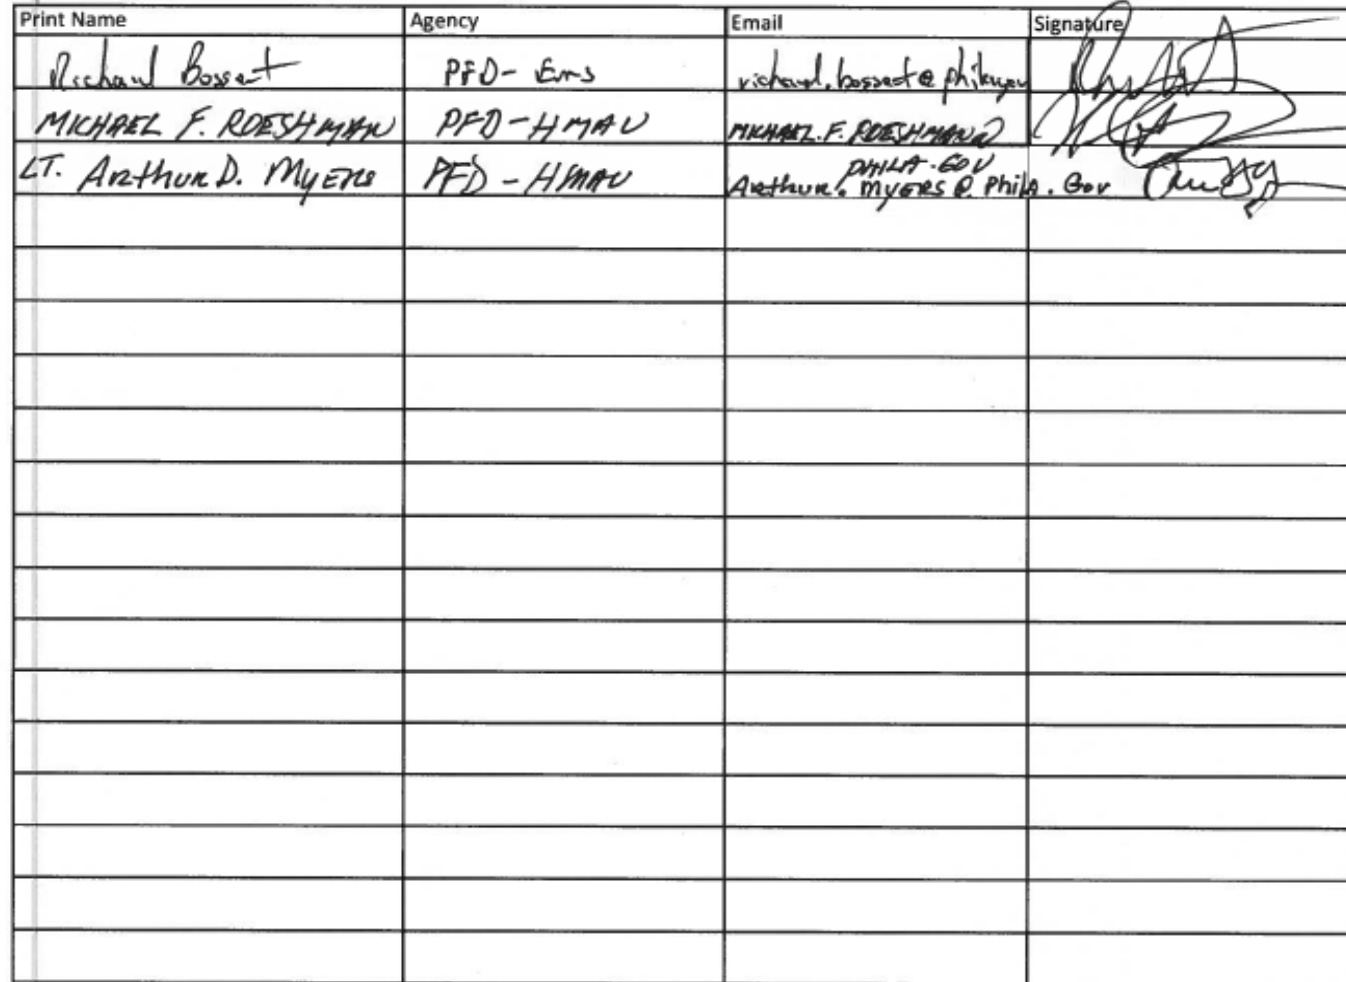 Print Name Agency Email Signature
Richard Bossert PFD- EMS richard.bossert@phila.gov
MICHAEL F. ROESHMAN PFD-HMAU MICHAEL.F.ROESHMAN@
PHILA.GOV
LT. Arthur D. Myers PFD - HMAU Arthur.myers@Phila.Gov